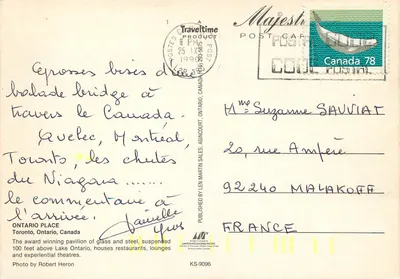 Traveltime
PRODUCT
Majest
POST CAR
Canada 78
CODE POSTAL
Grosses bises d'une
balade bridge à
travers le Canada.
Québec, Montréal,
Toronto, les chutes
du Niagara ......
le commentaire à
l'arrivée.
Danielle
Yves
Mme Suzanne SAUVIAT
20, rue Ampère
92240 MALAKOFF
FRANCE
PUBLISHED BY LEN MARTIN SALES, AGINCOURT, ONTARIO, CANADA
ONTARIO PLACE
Toronto, Ontario, Canada
The award winning pavilion of glass and steel, suspended
100 feet above Lake Ontario, houses restaurants, lounges
and experiential theatres.
Photo by Robert Heron
KS-9096